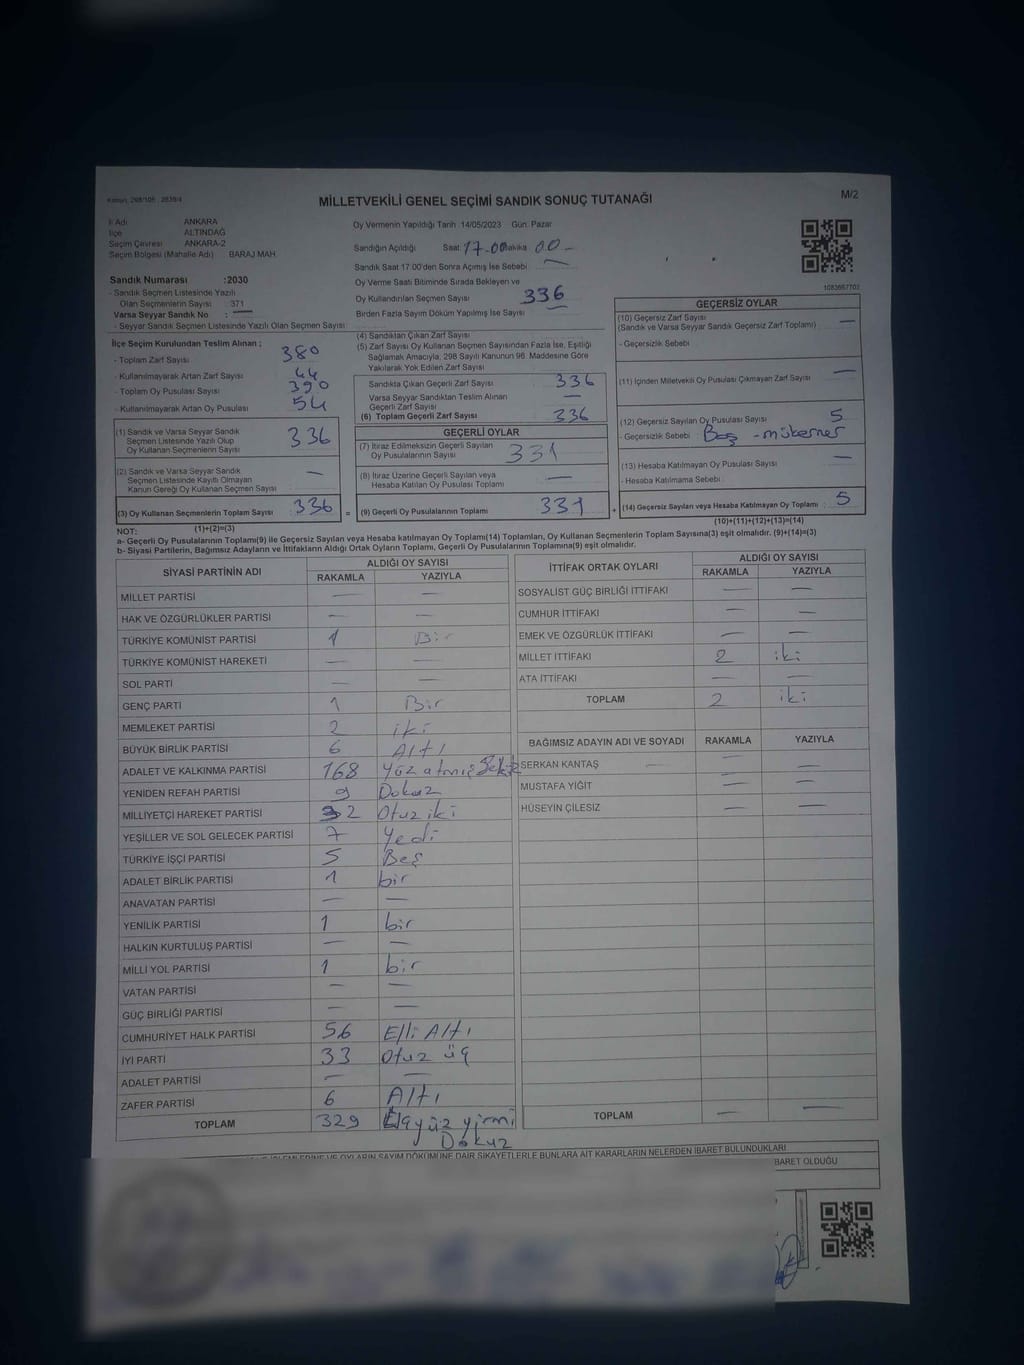 Kanun: 298/105 , 2839/4
MİLLETVEKİLİ GENEL SEÇİMİ SANDIK SONUÇ TUTANAĞI
M/2
İl Adı ANKARA
İlçe ALTINDAĞ
Seçim Çevresi ANKARA-2
Seçim Bölgesi (Mahalle Adı) BARAJ MAH.
Sandık Numarası :2030
- Sandık Seçmen Listesinde Yazılı
Olan Seçmenlerin Sayısı 371
Varsa Seyyar Sandık No : —
- Seyyar Sandık Seçmen Listesinde Yazılı Olan Seçmen Sayısı
Oy Vermenin Yapıldığı Tarih :14/05/2023 Gün: Pazar
Sandığın Açıldığı Saat: 17.00 Dakika 00 -
Sandık Saat 17:00'den Sonra Açımış İse Sebebi —
Oy Verme Saati Bitiminde Sırada Bekleyen ve
Oy Kullandırılan Seçmen Sayısı 336
Birden Fazla Sayım Döküm Yapılmış İse Sayısı —
1083667702
İlçe Seçim Kurulundan Teslim Alınan ;
- Toplam Zarf Sayısı 380
- Kullanılmayarak Artan Zarf Sayısı 44
- Toplam Oy Pusulası Sayısı 390
- Kullanılmayarak Artan Oy Pusulası 54
(1) Sandık ve Varsa Seyyar Sandık
Seçmen Listesinde Yazılı Olup
Oy Kullanan Seçmenlerin Sayısı 336
(2) Sandık ve Varsa Seyyar Sandık
Seçmen Listesinde Kayıtlı Olmayan
Kanun Gereği Oy Kullanan Seçmen Sayısı —
(3) Oy Kullanan Seçmenlerin Toplam Sayısı 336 =
(1)+(2)=(3)
(4) Sandıktan Çıkan Zarf Sayısı
(5) Zarf Sayısı Oy Kullanan Seçmen Sayısından Fazla İse, Eşitliği
Sağlamak Amacıyla, 298 Sayılı Kanunun 98. Maddesine Göre
Yakılarak Yok Edilen Zarf Sayısı
Sandıkta Çıkan Geçerli Zarf Sayısı 336
Varsa Seyyar Sandıktan Teslim Alınan
Geçerli Zarf Sayısı —
(6) Toplam Geçerli Zarf Sayısı 336
GEÇERLİ OYLAR
(7) İtiraz Edilmeksizin Geçerli Sayılan
Oy Pusulalarının Sayısı 331
(8) İtiraz Üzerine Geçerli Sayılan veya
Hesaba Katılan Oy Pusulası Toplamı —
(9) Geçerli Oy Pusulalarının Toplamı 331 +
GEÇERSİZ OYLAR
(10) Geçersiz Zarf Sayısı
(Sandık ve Varsa Seyyar Sandık Geçersiz Zarf Toplamı) —
- Geçersizlik Sebebi :
(11) İçinden Milletvekili Oy Pusulası Çıkmayan Zarf Sayısı —
(12) Geçersiz Sayılan Oy Pusulası Sayısı 5
- Geçersizlik Sebebi : Boş - mükerrer
(13) Hesaba Katılmayan Oy Pusulası Sayısı —
- Hesaba Katılmama Sebebi :
(14) Geçersiz Sayılan veya Hesaba Katılmayan Oy Toplamı : 5
(10)+(11)+(12)+(13)=(14)
NOT:
a- Geçerli Oy Pusulalarının Toplamı(9) ile Geçersiz Sayılan veya Hesaba katılmayan Oy Toplamı(14) Toplamları, Oy Kullanan Seçmenlerin Toplam Sayısına(3) eşit olmalıdır. (9)+(14)=(3)
b- Siyasi Partilerin, Bağımsız Adayların ve İttifakların Aldığı Ortak Oyların Toplamı, Geçerli Oy Pusulalarının Toplamına(9) eşit olmalıdır.
SİYASİ PARTİNİN ADI ALDIĞI OY SAYISI
RAKAMLA YAZIYLA
MİLLET PARTİSİ — —
HAK VE ÖZGÜRLÜKLER PARTİSİ — —
TÜRKİYE KOMÜNİST PARTİSİ 1 Bir
TÜRKİYE KOMÜNİST HAREKETİ — —
SOL PARTİ — —
GENÇ PARTİ 1 Bir
MEMLEKET PARTİSİ 2 iki
BÜYÜK BİRLİK PARTİSİ 6 Altı
ADALET VE KALKINMA PARTİSİ 168 Yüz atmış Sekiz
YENİDEN REFAH PARTİSİ 9 Dokuz
MİLLİYETÇİ HAREKET PARTİSİ 32 Otuz iki
YEŞİLLER VE SOL GELECEK PARTİSİ 7 Yedi
TÜRKİYE İŞÇİ PARTİSİ 5 Beş
ADALET BİRLİK PARTİSİ 1 bir
ANAVATAN PARTİSİ — —
YENİLİK PARTİSİ 1 bir
HALKIN KURTULUŞ PARTİSİ — —
MİLLİ YOL PARTİSİ 1 bir
VATAN PARTİSİ — —
GÜÇ BİRLİĞİ PARTİSİ — —
CUMHURİYET HALK PARTİSİ 56 Elli Altı
İYİ PARTİ 33 Otuz üç
ADALET PARTİSİ — —
ZAFER PARTİSİ 6 Altı
TOPLAM 329 Üçyüz yirmi
Dokuz
İTTİFAK ORTAK OYLARI ALDIĞI OY SAYISI
RAKAMLA YAZIYLA
SOSYALİST GÜÇ BİRLİĞİ İTTİFAKI — —
CUMHUR İTTİFAKI — —
EMEK VE ÖZGÜRLÜK İTTİFAKI — —
MİLLET İTTİFAKI 2 iki
ATA İTTİFAKI — —
TOPLAM 2 iki
BAĞIMSIZ ADAYIN ADI VE SOYADI RAKAMLA YAZIYLA
SERKAN KANTAŞ — —
MUSTAFA YİĞİT — —
HÜSEYİN ÇİLESİZ — —
TOPLAM — —
İŞLEMLERİNE VE OYLARIN SAYIM DÖKÜMÜNE DAİR ŞİKAYETLERLE BUNLARA AİT KARARLARIN NELERDEN İBARET BULUNDUKLARI
BARET OLDUĞU